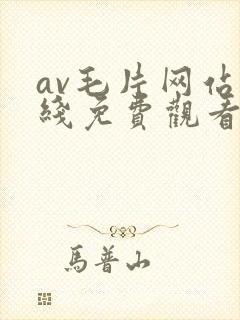 av毛片网佔
綫免費觀看
馬普山